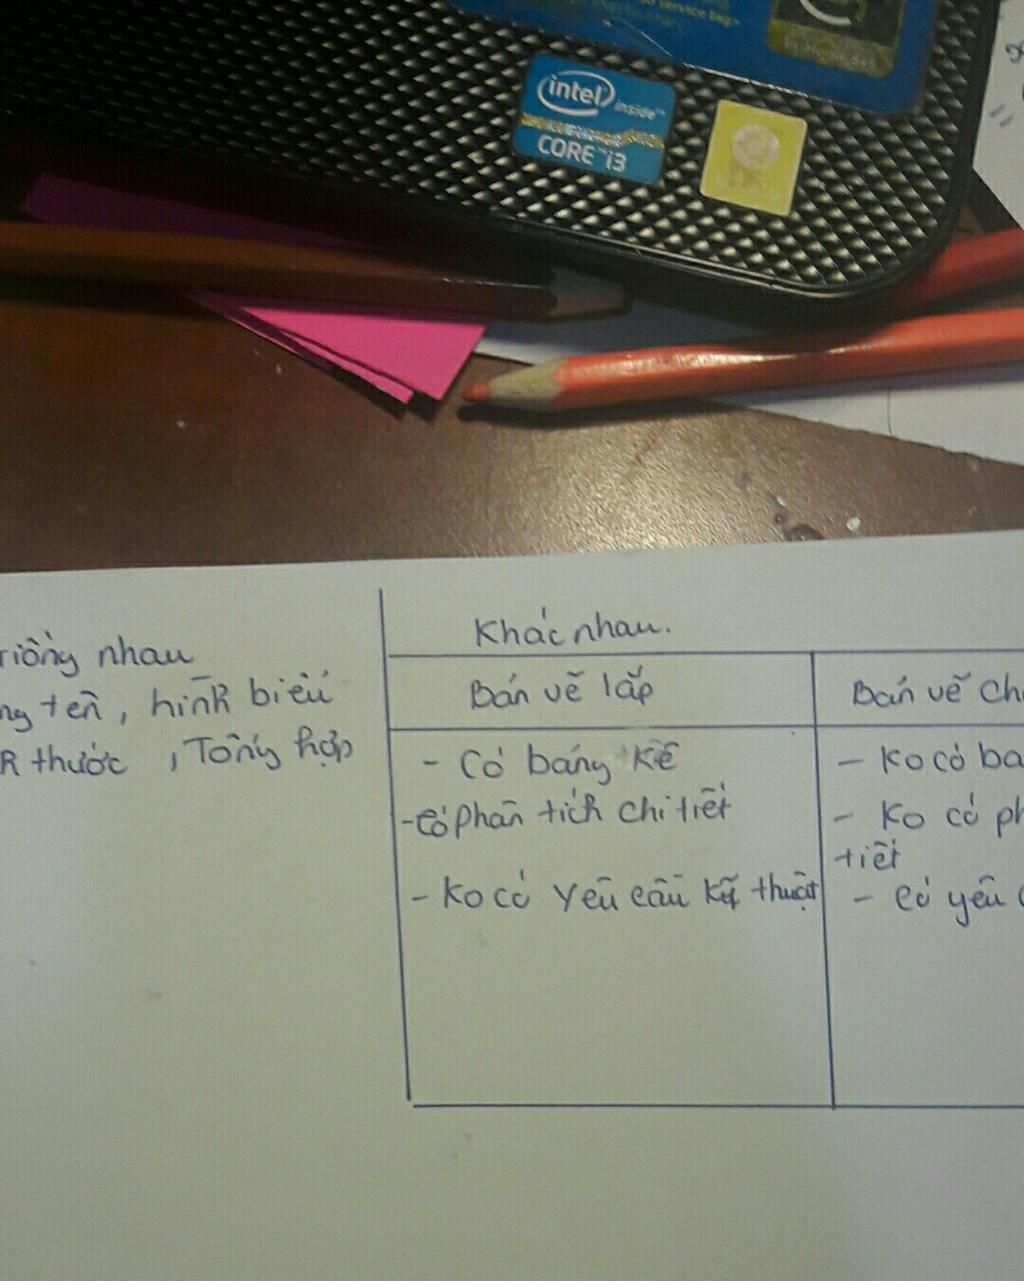 service tag>
intel inside™
CORE™ i3
Khác nhau.
riống nhau
Bản vẽ lắp
Bản vẽ ch
ng tên, hình biểu
h thước, Tổng hợp
- Có bảng kê
- Ko có ba
- Có phân tích chi tiết
- Ko có ph
tiết
- Ko có yêu cầu kỹ thuật
- Có yêu c